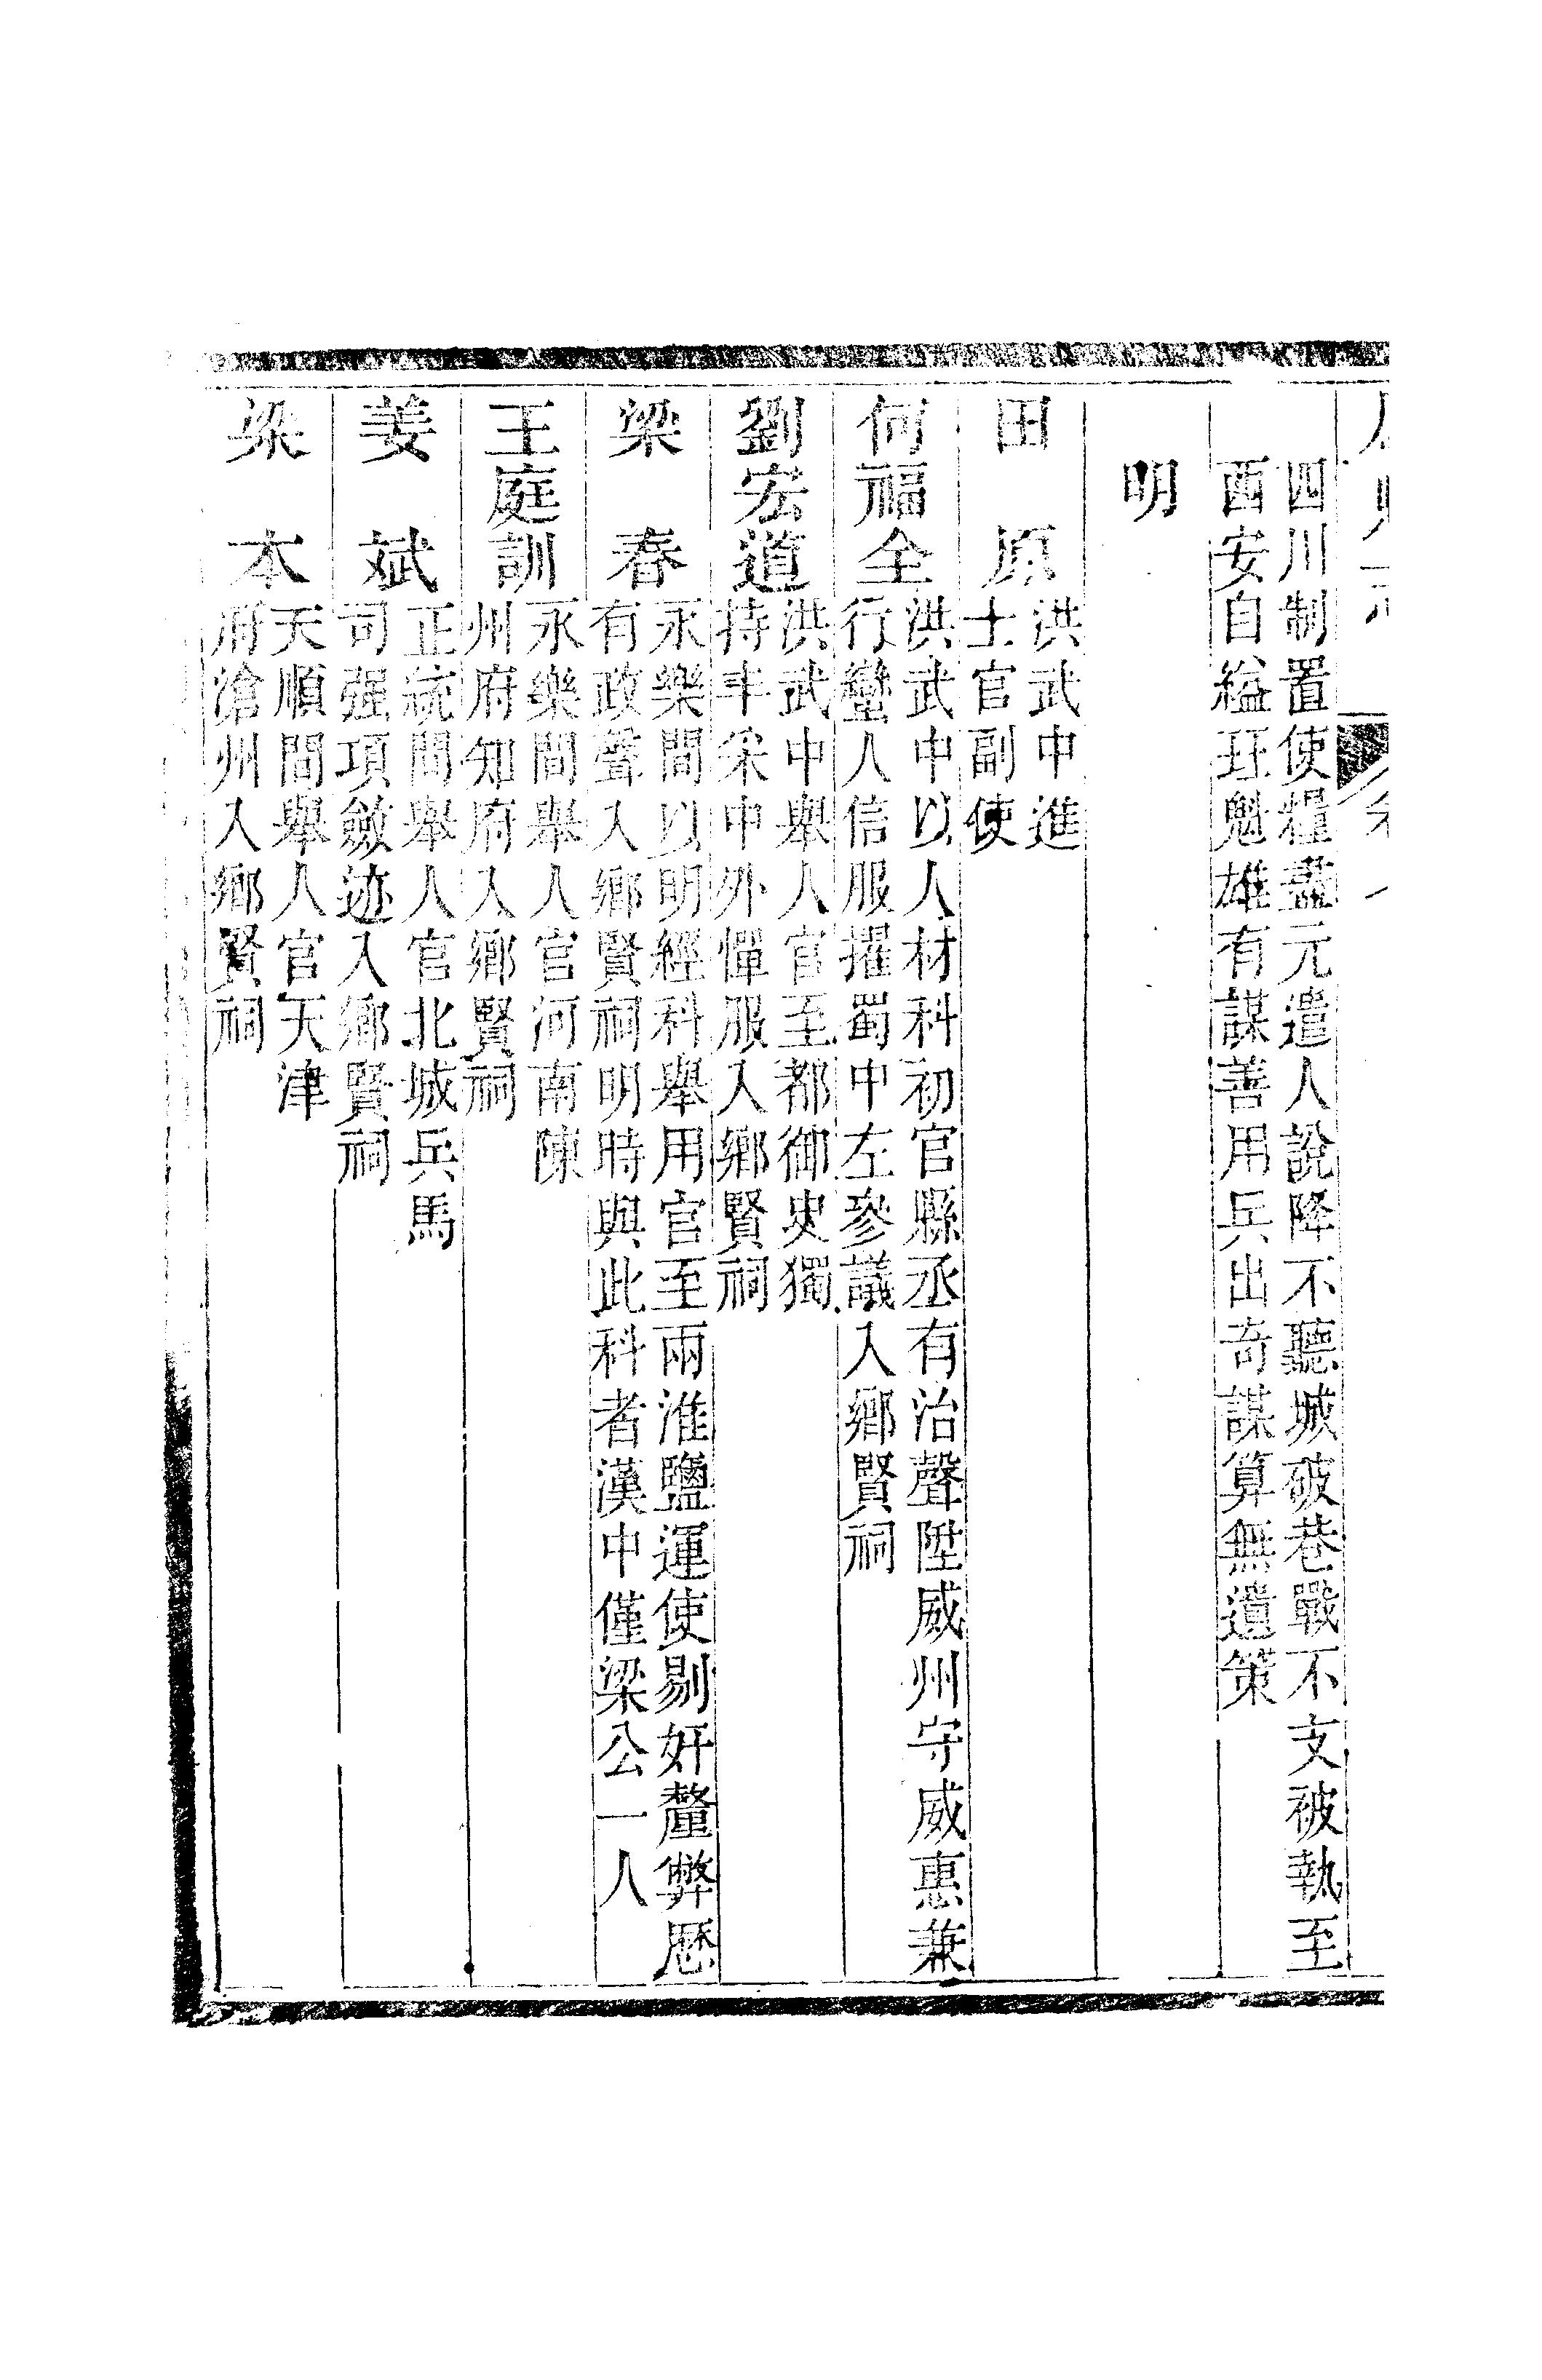 四川制置使糧盡元遣人說降不聽城破巷戰不支被執至
西安自縊珏魁雄有謀善用兵出奇謀算無遺策
明
田原
洪武中進
士官副使
何福全
洪武中以人材科初官縣丞有治聲陞威州守威惠兼
行蠻人信服擢蜀中左參議入鄉賢祠
劉宏道
洪武中舉人官至都御史獨
持丰采中外憚服入鄉賢祠
梁春
永樂間以明經科舉用官至兩淮鹽運使剔奸釐弊歷
有政聲入鄉賢祠明時與此科者漢中僅梁公一人
王庭訓
永樂間舉人官河南陳
州府知府入鄉賢祠
姜斌
正統間舉人官北城兵馬
司强項斂迹入鄉賢祠
梁本
天順間舉人官天津
府滄州入鄉賢祠